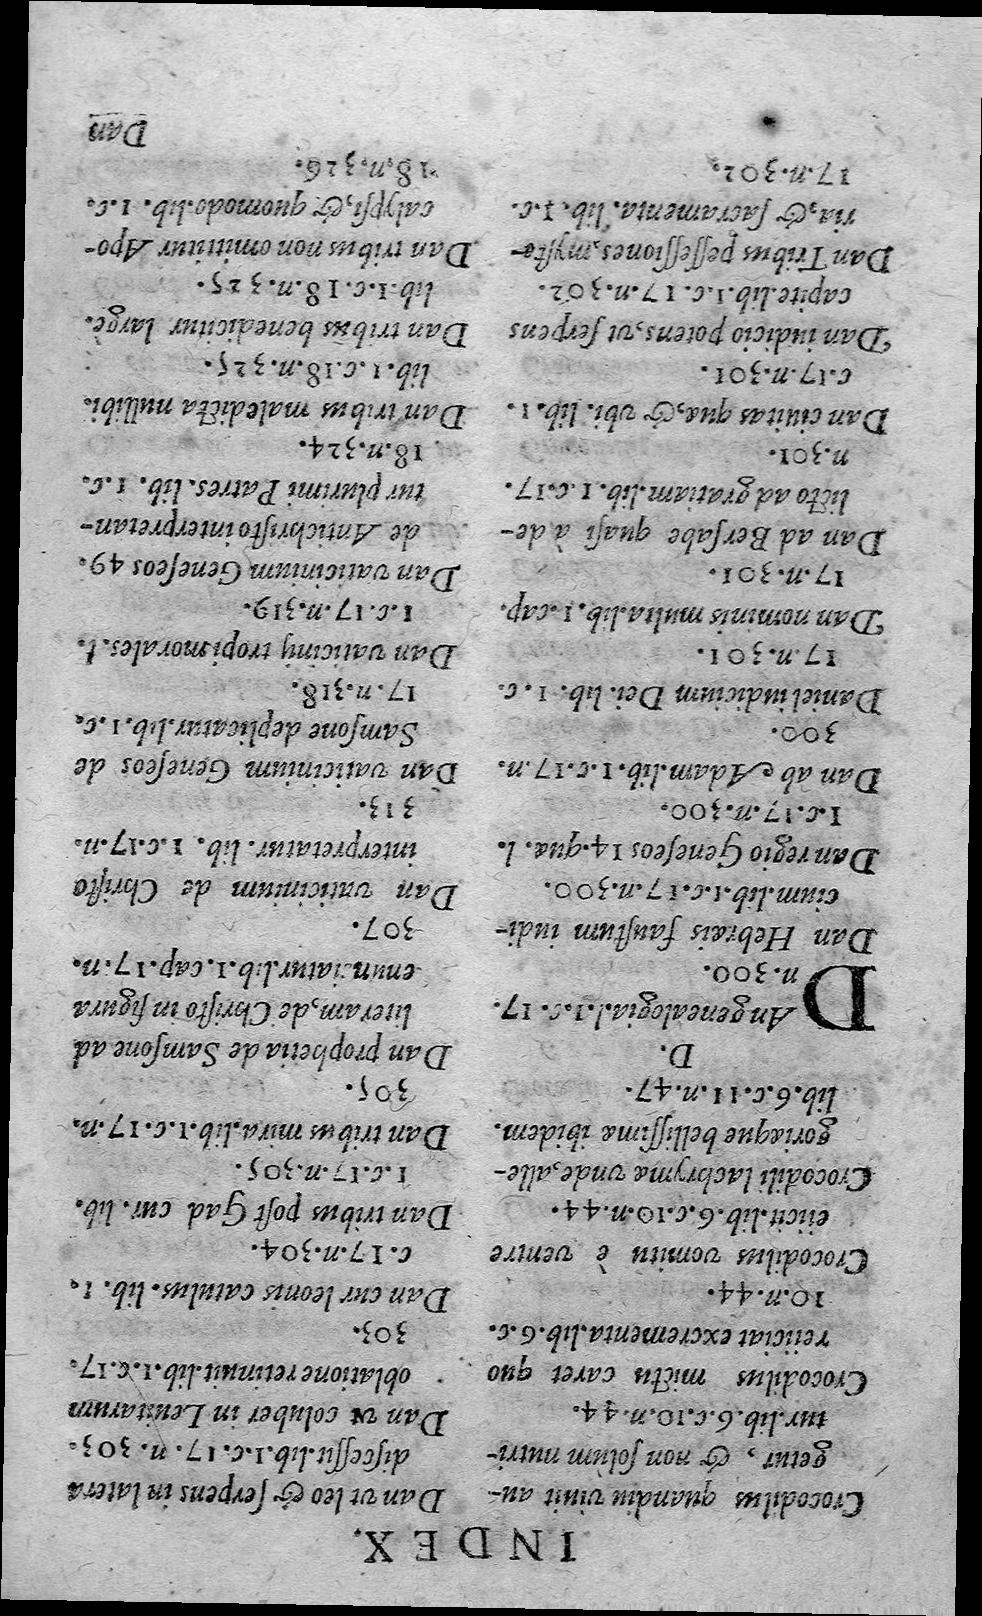 INDEX.
Crocodilus quandiu viuit au-
getur, & non ſolùm nutri-
tur.lib.6.c.10.n.44.
Crocodilus mictu caret quo
reiiciat excrementa.lib.6.c.
10.n.44.
Crocodilus vomitu è ventre
eiicit.lib.6.c.10.n.44.
Crocodili lachrymæ vnde,alle-
goriaque belliſſima ibidem.
lib.6.c.11.n.47.
D.
DAn genealogia.l.1.c.17.
n.300.
Dan Hebræis fauſtum iudi-
cium.lib.1.c.17.n.300.
Dan regio Geneſeos 14.qua.l.
1.c.17.n.300.
Dan ab Adam.lib.1.c.17.n.
300.
Daniel iudicium Dei.lib.1.c.
17.n.301.
Dan nominis multa.lib.1.cap.
17.n.301.
Dan ad Berſabe quaſi à de-
licto ad gratiam.lib.1.c.17.
n.301.
Dan ciuitas qua,& vbi.lib.1.
c.17.n.301.
Dan iudicio potens,vt ſerpens
capite.lib.1.c.17.n.302.
Dan Tribus peſſeſſiones,myſte-
ria,& ſacramenta.lib.1.c.
17.n.302.
Dan vt leo & ſerpens in latera
diſceſſit.lib.1.c.17.n.303.
Dan vt coluber in Leuitarum
oblatione retinuit.lib.1.c.17.
303.
Dan cur leonis catulus.lib.1.
c.17.n.304.
Dan tribus poſt Gad cur.lib.
1.c.17.n.305.
Dan tribus mira.lib.1.c.17.n.
305.
Dan prophetia de Samſone ad
literam,de Chriſto in figura
enunciatur.lib.1.cap.17.n.
307.
Dan vaticinium de Chriſto
interpretatur.lib.1.c.17.n.
313.
Dan vaticinium Geneſeos de
Samſone deplicatur.lib.1.c.
17.n.318.
Dan vaticinij tropi morales.l.
1.c.17.n.319.
Dan vaticinium Geneſeos 49.
de Antichriſto interpretan-
tur plurimi Patres.lib.1.c.
18.n.324.
Dan tribus maledicta nullibi.
lib.1.c.18.n.325.
Dan tribus benedicitur largè.
lib.1.c.18.n.325.
Dan tribus non omittitur Apo-
calypſi,& quomodo.lib.1.c.
18.n.326.
Dan